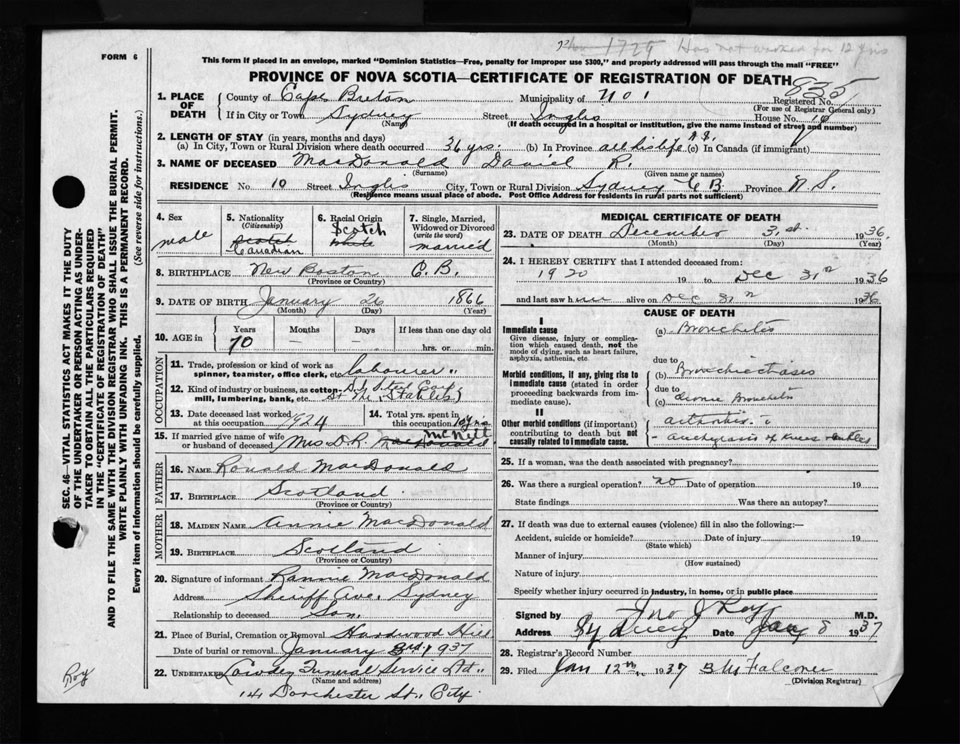 1729 Has not worked for 12 yrs
FORM 6
This form if placed in an envelope, marked "Dominion Statistics—Free, penalty for improper use $300," and properly addressed will pass through the mail "FREE"
PROVINCE OF NOVA SCOTIA—CERTIFICATE OF REGISTRATION OF DEATH
SEC. 46—VITAL STATISTICS ACT MAKES IT THE DUTY
OF THE UNDERTAKER OR PERSON ACTING AS UNDER-
TAKER TO OBTAIN ALL THE PARTICULARS REQUIRED
IN THE "CERTIFICATE OF REGISTRATION OF DEATH" (See reverse side for instructions.)
AND TO FILE THE SAME WITH THE DIVISION REGISTRAR WHO SHALL ISSUE THE BURIAL PERMIT.
WRITE PLAINLY WITH UNFADING INK. THIS IS A PERMANENT RECORD.
Every item of information should be carefully supplied.
1. PLACE OF DEATH County of Cape Breton Municipality of No 1 Registered No. 835
(For use of Registrar General only)
If in City or Town Sydney Street Inglis House No. 10
(Name) (If death occurred in a hospital or institution, give the name instead of street and number)
2. LENGTH OF STAY (in years, months and days)
(a) In City, Town or Rural Division where death occurred 36 yrs. (b) In Province all his life (c) In Canada (if immigrant)
3. NAME OF DECEASED MacDonald David R.
(Surname) (Given name or names)
RESIDENCE No. 10 Street Inglis City, Town or Rural Division Sydney C B. Province N. S.
(Residence means usual place of abode. Post Office Address for residents in rural parts not sufficient)
4. Sex male
5. Nationality (Citizenship) Scotch Canadian
6. Racial Origin Scotch White
7. Single, Married, Widowed or Divorced (write the word) married
8. BIRTHPLACE New Boston C. B.
(Province or Country)
9. DATE OF BIRTH January 26 1866
(Month) (Day) (Year)
10. AGE in Years 70 Months — Days — If less than one day old hrs. or min.
OCCUPATION
11. Trade, profession or kind of work as spinner, teamster, office clerk, etc. Labourer
12. Kind of industry or business, as cotton mill, lumbering, bank, etc. Stables)
13. Date deceased last worked at this occupation 1924
14. Total yrs. spent in this occupation
15. If married give name of wife or husband of deceased Mrs D. R. MacDonald McNeil
FATHER
16. NAME Ronald MacDonald
17. BIRTHPLACE Scotland
(Province or Country)
MOTHER
18. MAIDEN NAME Annie MacDonald
19. BIRTHPLACE Scotland
(Province or Country)
20. Signature of informant Rannie MacDonald
Address Sheriff Ave. Sydney
Relationship to deceased Son.
21. Place of Burial, Cremation or Removal Hardwood Hill
Date of burial or removal January 3rd 1937
22. UNDERTAKER Cowden Funeral Service Ltd
(Name and address)
14 Dorchester St. City.
Roy
MEDICAL CERTIFICATE OF DEATH
23. DATE OF DEATH December 31st. 1936.
(Month) (Day) (Year)
24. I HEREBY CERTIFY that I attended deceased from:
1920 19 to Dec 31st 1936
and last saw him alive on Dec 31st 1936
CAUSE OF DEATH
I
Immediate cause (a) Bronchitis
Give disease, injury or complication which caused death, not the mode of dying, such as heart failure, asphyxia, asthenia, etc.
due to
Morbid conditions, if any, giving rise to immediate cause (stated in order proceeding backwards from immediate cause). (b) Bronchiectasis
due to
(c) Chronic Bronchitis
II
Other morbid conditions (if important) contributing to death but not causally related to immediate cause. arthritis
25. If a woman, was the death associated with pregnancy?
26. Was there a surgical operation? no Date of operation 19
State findings Was there an autopsy?
27. If death was due to external causes (violence) fill in also the following:—
Accident, suicide or homicide? Date of injury 19
(State which)
Manner of injury
(How sustained)
Nature of injury
Specify whether injury occurred in industry, in home, or in public place
Signed by Jno J Roy M.D.
Address Sydney Date Jany 8 1937
28. Registrar's Record Number
29. Filed Jan 12th 1937 B W Falconer
(Division Registrar)